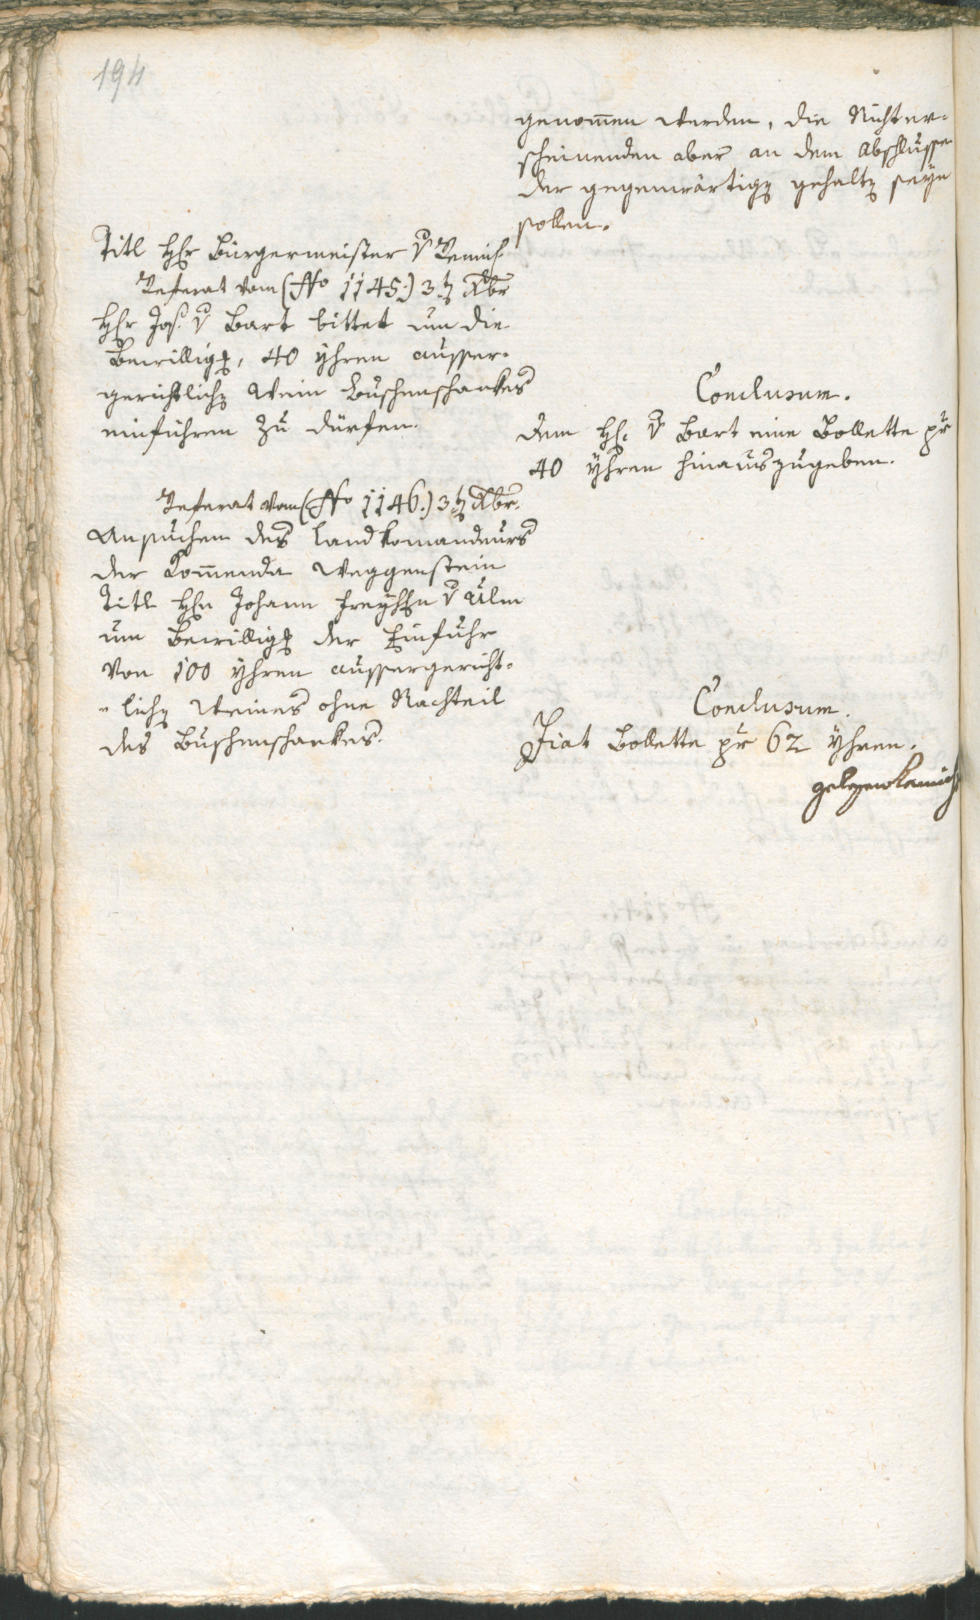 194
genom̄en werden, die Nichter-
scheinenden aber an dem Abschlusse
der gegenwärtig gehalt seyn
sollen.
Titl HHr Bürgermeister v
Referat vom (No 1145.) 3t Xbr
HHr Jos. v Bart bittet um die
Bewillig, 40 Yhren ausser-
gerichtlich Wein Buschenschankes
einführen zu dürfen.
Conclusum.
Dem HH. v Bart eine Bollette pr
40 Yhren hinauszugeben.
Referat vom (No 1146.) 3t Xbr.
Ansuchen des Landkomandeurs
der Kom̄enda Weggenstein
Titl HHn Johann Freyhhn v Ulm
um Bewillig der Einfuhr
von 100 Yhren aussergericht-
-lich Weines ohne Nachteil
des Buschenschankes.
Conclusum.
Fiat Bollette pr 62 Yhren.